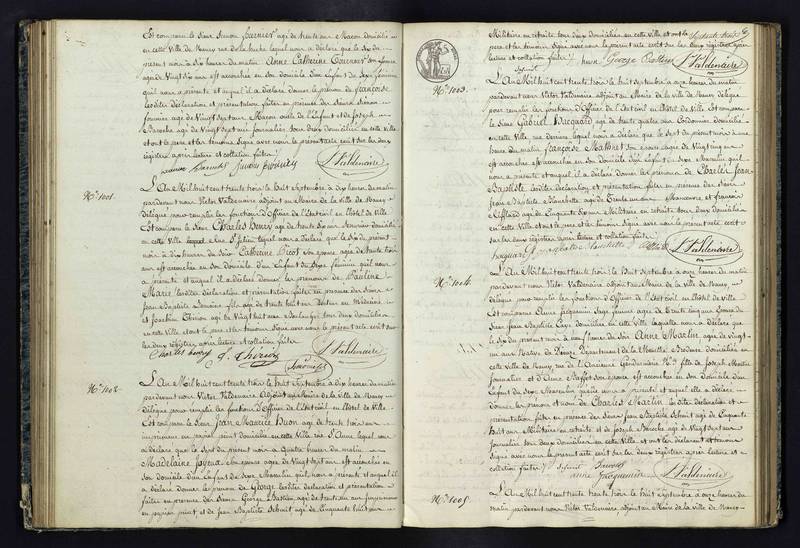 Est comparu le Sieur Simon Fournier agé de trente Sept ans Macon domicilié
en cette Ville de Nancy rue de la lequel nous a déclaré que le Six du
présent mois à dix heures du matin Anne Catherine son épouse
agée de Vingt Six ans est accouchée en son domicile d'un Enfant du Sexe féminin
qu'il nous a présenté et auquel il a déclaré donner le prénom de Françoise
lesdites déclaration et présentation faites en présence des Sieurs Simon
fournier agé de Vingt Sept ans Macon oncle de l'Enfant et de Joseph
Baroche agé de Vingt Sept ans journalier tous deux domiciliés en cette Ville
et ont le père et les témoins Signé avec nous le présent acte écrit sur les deux
régistres après lecture et collation faites
S. Valdenaire
N.o 1001.
L'An Mil huit cent trente trois le huit Septembre à dix heures du matin
pardevant nous Victor Valdenaire adjoint au Maire de la Ville de Nancy
délégué pour remplir les fonctions d'Officier de l'Etat civil en l'Hôtel de Ville
Est comparu le Sieur Charles Henry agé de trente Six ans domicilié
en cette Ville rue St Julien lequel nous a déclaré que le Six du présent
mois à dix heures du Soir Catherine Picot Son épouse agée de trente trois
ans est accouchée en son domicile d'un Enfant du Sexe féminin qu'il nous
a présenté et auquel il a déclaré donner les prénoms de Pauline
Marie lesdites déclaration et présentation faites en présence des Sieurs
Jean Baptiste Simonin fils agé de trente huit ans Docteur en Médecine
et Joachim Thirion agé de Vingt huit ans Boulanger tous deux domiciliés
en cette Ville et ont le père et les témoins Signé avec nous le présent acte écrit sur
les deux régistres après lecture et collation faites
Charles henry J. Thirion S. Valdenaire
Simonin fils
N.o 1002.
L'An Mil huit cent trente trois le huit Septembre à dix heures du matin
pardevant nous Victor Valdenaire Adjoint au Maire de la Ville de Nancy
délégué pour remplir les fonctions d'Officier de l'Etat civil en l'Hôtel de Ville
Est comparu le Sieur Jean Maurice Buon agé de trente trois ans
imprimeur en papier peint domicilié en cette Ville rue St Anne lequel nous
a déclaré que le Sept du présent mois à Quatre heures du matin
Madelaine Joyeux Son épouse agée de Vingt Sept ans est accouchée en
Son domicile d'un Enfant du Sexe Masculin qu'il nous a présenté et auquel il
a déclaré donner le prénom de George lesdites déclaration et présentation
faites en présence des Sieurs George Bastien agé de trente du ans
en papier peint et de Jean Baptiste Schmit agé de Cinquante huit ans
Militaire en retraite tous deux domiciliés en cette Ville et ont le
père et les témoins Signé avec nous le présent acte écrit sur les deux régistres après
lecture et collation faites
buon George Bastien S. Valdenaire
Schmit
N.o 1003.
L'An Mil huit cent trente trois le huit Septembre à onze heures du matin
pardevant nous Victor Valdenaire adjoint au Maire de la Ville de Nancy délégué
pour remplir les fonctions d'Officier de l'Etat civil en l'Hôtel de Ville Est comparu
le Sieur Gabriel Bacquard agé de trente quatre ans Cordonnier domicilié
en cette Ville, rue lequel nous a déclaré que le Sept du présent mois à une
heure du matin Françoise Mathiet Son épouse agée de Vingt cinq ans
est accouchée en son domicile d'un Enfant du Sexe Masculin qu'il
nous a présenté et auquel il a déclaré donner les prénoms de Charles Jean
Baptiste lesdites déclaration et présentation faites en présence des Sieurs
Jean Baptiste Blanchette agé de trente un ans Manoeuvre et françois
Afflard agé de Cinquante Six ans Militaire en retraite tous deux domiciliés
en cette Ville et ont le père et les témoins Signé avec nous le présent acte écrit
sur les deux régistres après lecture et collation faites
bacquard S. Valdenaire
N.o 1004.
L'An Mil huit cent trente trois le huit Septembre à onze heures du matin
pardevant nous Victor Valdenaire adjoint au Maire de la Ville de Nancy,
délégué pour remplir les fonctions d'Officier de l'Etat civil en l'hôtel de Ville
Est comparue Anne Jacquemin Sage femme agée de trente cinq ans Epouse du
Sieur Jean Baptiste domiciliée en cette Ville laquelle nous a déclaré que
le Six du présent mois à neuf heures du Soir Anne Marlin agée de vingt
un ans Native de département de la Moselle Brodeuse domiciliée en
cette Ville de Nancy, rue de l'Ancienne Gendarmerie fille de Joseph Marlin
Journalier et d'Anne Son épouse est accouchée en Son domicile d'un
Enfant du Sexe Masculin qu'elle nous a présenté et auquel elle a déclaré
donner les prénom et nom de Charles Marlin lesdites déclaration et
présentation faites en présence des Sieurs Jean Baptiste Schmit agé de Cinquante
huit ans Militaire en retraite et de Joseph Baroche agé de Vingt Sept ans
Journalier tous deux domiciliés en cette Ville et ont les déclarant et témoins
Signé avec nous le présent acte écrit sur les deux régistres après lecture et
collation faites Schmit Baroche
anne Jacquemin S. Valdenaire
N.o 1005.
L'An Mil huit cent trente trois le huit Septembre à onze heures du
matin pardevant nous Victor Valdenaire, adjoint au Maire de la Ville de Nancy